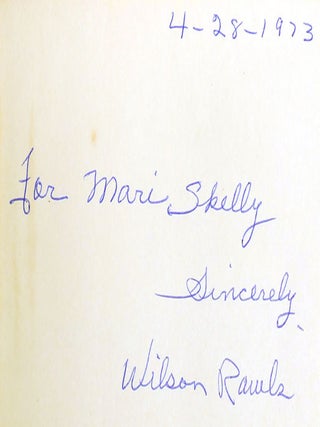 4-28-1973
For Mari Skelly
Sincerely,
Wilson Rawls